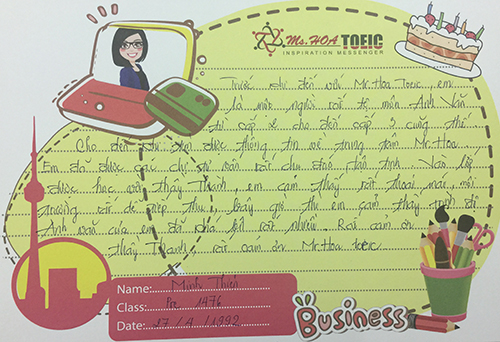 Ms.HOA TOEIC
INSPIRATION MESSENGER
Trước khi đến với Mr.Hoa Toeic em
là một người rất tệ môn Anh Văn
từ cấp 2 cho đến cấp 3 cũng thế
Cho đến khi xem được thông tin về trung tâm Mr.Hoa
Em đã được các chị tư vấn rất chu đáo tận tình. Vào lớp
được học với thầy Thành, em cảm thấy rất thoải mái, môi
trường rất dễ tiếp thu, bây giờ thì em cảm thấy trình độ
Anh văn của em đã khá hơn rất nhiều. Rất cảm ơn
thầy Thành, rất cảm ơn Mr.Hoa toeic.
Name: Minh Thiên
Class: Pre 1476
Date: 17 / 9 / 1992
Business